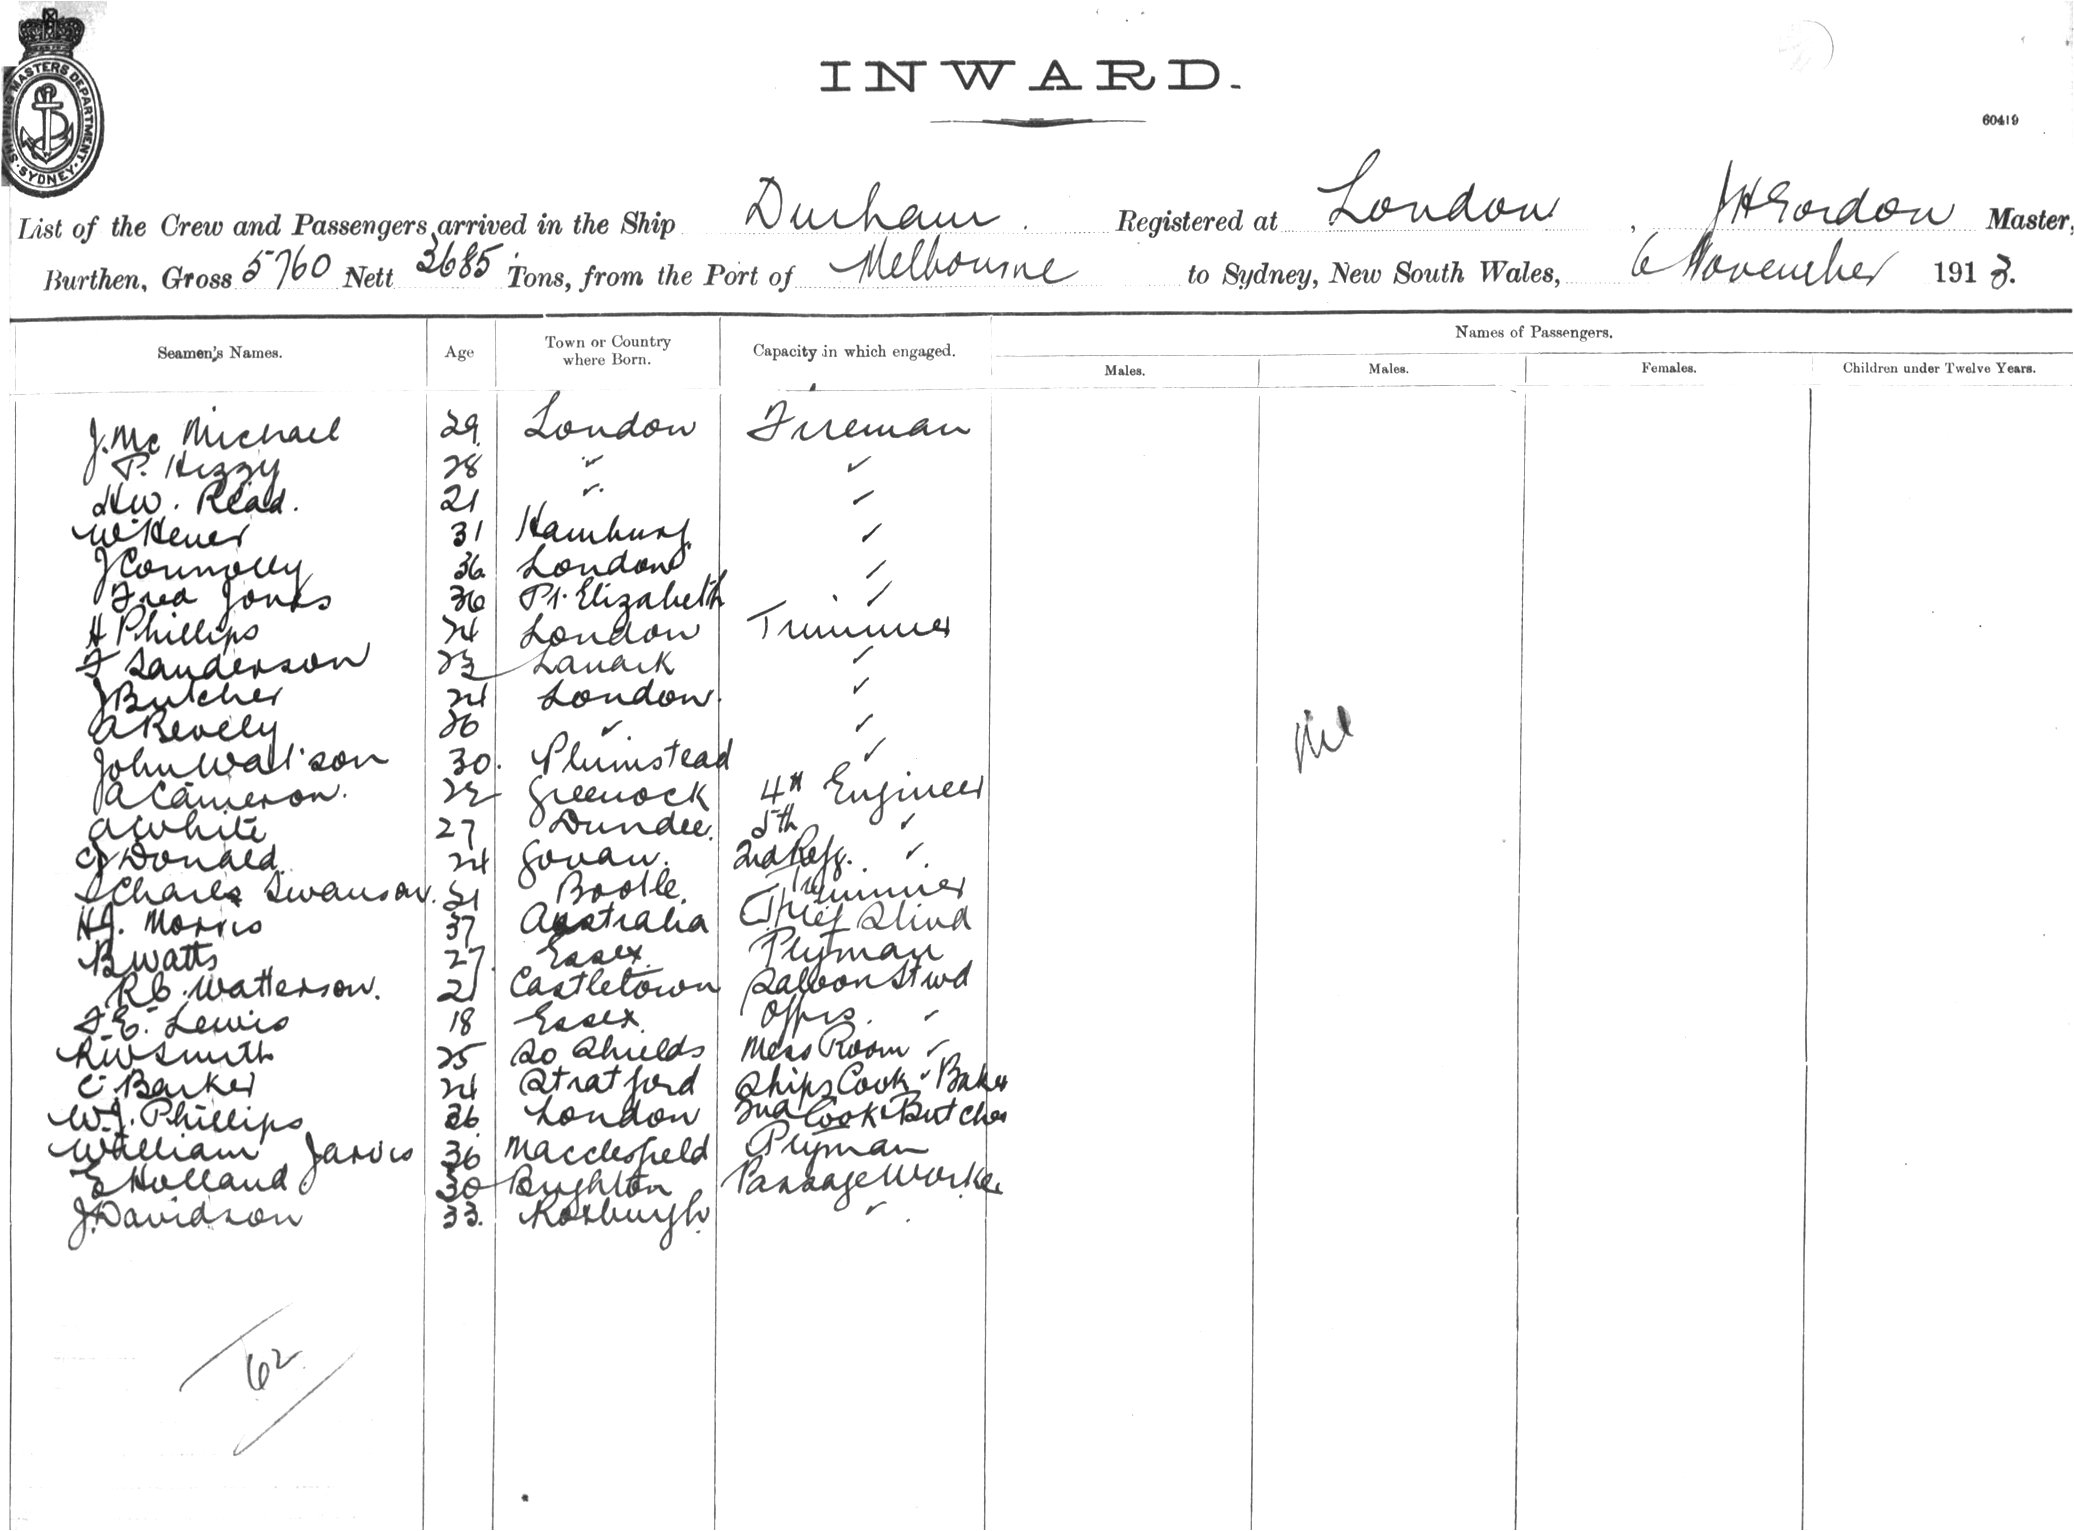 SHIPPING MASTERS DEPARTMENT · SYDNEY ·
INWARD.
60419
List of the Crew and Passengers arrived in the Ship Durham. Registered at London, J H Gordon Master,
Burthen, Gross 5760 Nett 3685 Tons, from the Port of Melbourne to Sydney, New South Wales, 6 November 1913.
Seamen's Names. Age Town or Country where Born. Capacity in which engaged. Names of Passengers.
Males. Males. Females. Children under Twelve Years.
J. Mc Michael 29 London Fireman
P. Hizzy 28 " "
H W. Read. 21 " "
W Hener 31 Hamburg "
J Connolly 36 London "
Fred Jones 36 Pt. Elizabeth "
H Phillips 24 London Trimmer
F Sanderson 23 Lanark "
J Butcher 24 London. "
A Revely 26 " "
John Watson 30. Plumstead "
A Cameron. Greenock 4th Engineer
A White 27 Dundee. 5th "
Donald 24 Govan. 2nd Refg. "
Charles Swanson. 21 Bootle. Trimmer
H J. Morris 37 Australia Chief Stwd
B Watts 27. Essex. Ptyman
R C. Watterson. 21 Castletown Saloon Stwd
F. E. Lewis 18 Essex Offrs. "
R W Smith 25 So Shields Mess Room "
C Barker 24 Stratford Ships Cook & Baker
W. J. Phillips 26 London 2nd Cook & Butcher
William Jarvis 36 Macclesfield Ptyman
E Holland 30 Brighton Passage Worker
J. Davidson 33. Roxburgh "
Nil
62